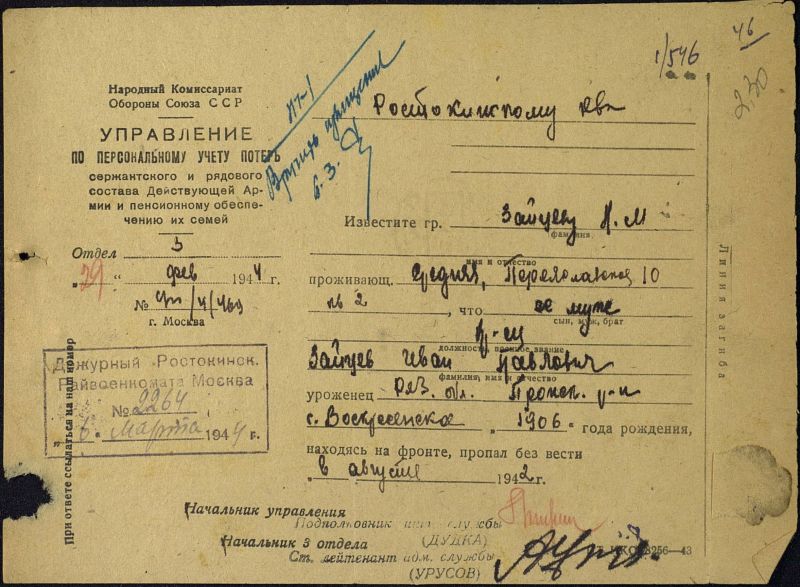 46
1/546
2,30
Народный Комиссариат
Обороны Союза ССР
УПРАВЛЕНИЕ
ПО ПЕРСОНАЛЬНОМУ УЧЕТУ ПОТЕРЬ
сержантского и рядового
состава Действующей Ар-
мии и пенсионному обеспе-
чению их семей
Отдел 3
"29" фев 1944 г.
№ /4/469
г. Москва
6.3.
Ростокинскому рвк
Известите гр. Зайцеву М
фамилия
имя и отчество
проживающ. Средняя, Переяславская 10
кв 2, что ее муж
сын, муж, брат
кр-ец
должность, военное звание
Зайцев Иван Павлович
фамилия, имя и отчество
уроженец Ряз. обл. Пронск. р-н
с. Воскресенское "1906" года рождения,
находясь на фронте, пропал без вести
в августе 1942 г.
Линия загиба
При ответе ссылаться на наш номер
Дежурный Ростокинск.
Райвоенкомата Москва
№ 2264
"6" Марта 1944 г.
Начальник управления
Подполковник инт. службы
(ДУДКА)
Начальник 3 отдела
Ст. лейтенант адм. службы
(УРУСОВ)
3256—43